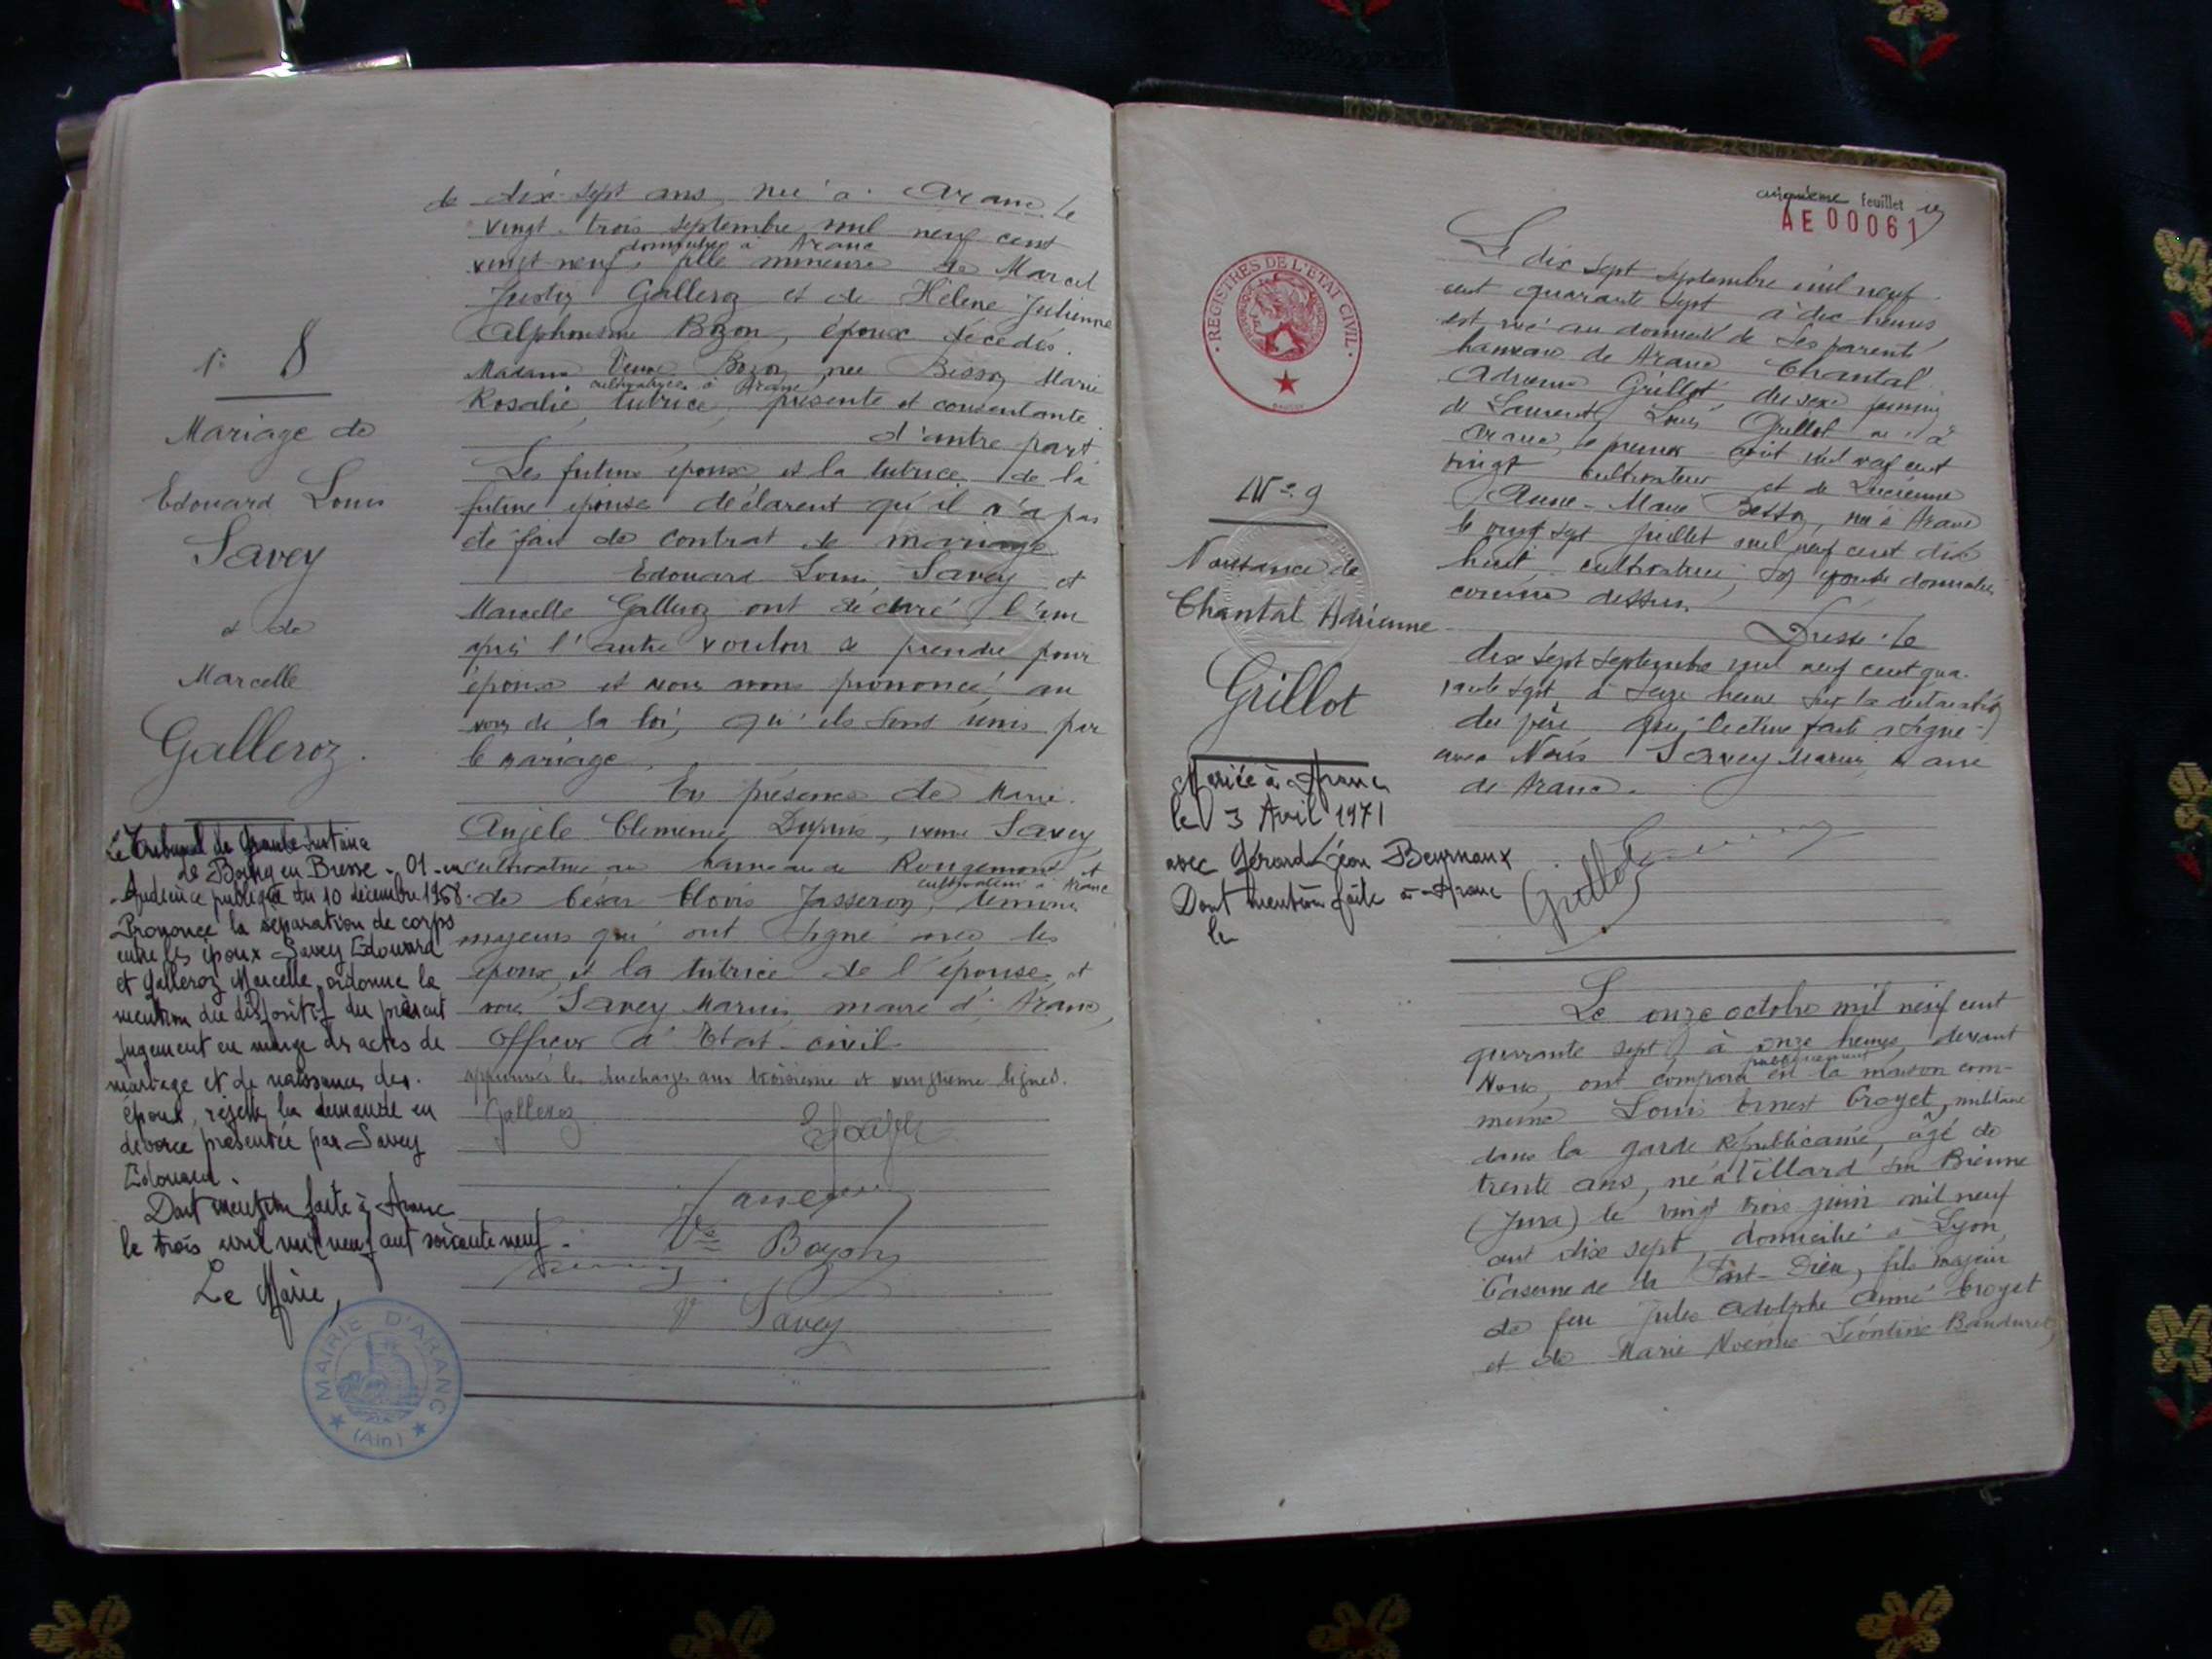 de dix-sept ans, née à Aranc le
vingt-trois septembre mil neuf cent
domiciliée à Aranc
vingt-neuf, fille mineure de Marcel
Justin Galleroz et de Hélène Julienne
Alphonsine Bozon, époux décédés.
Madame Veuve Bozon née Besson Marie
cultivatrice à Aranc
Rosalie tutrice, présente et consentante
d'autre part
Les futurs époux et la tutrice de la
future épouse déclarent qu'il n'a pas
été fait de contrat de mariage
Edouard Louis Savey et
Marcelle Galleroz ont déclaré l'un
après l'autre vouloir se prendre pour
époux et nous avons prononcé, au
nom de la loi, qu'ils sont unis par
le mariage.
En présence de Marie
Angèle Clémence Dupuis, veuve Savey,
cultivatrice au hameau de Rougemont et
cultivateur à Aranc
de César Clovis Jasseron, témoins
majeurs qui ont signé avec les
époux et la tutrice de l'épouse et
nous Savey Marius, maire d'Aranc,
Officier d'Etat-civil
approuvés les surcharges aux troisième et vingtième lignes.
Galleroz
Jasseron
Vve Bozon
V Savey
N° 8
Mariage de
Edouard Louis
Savey
et de
Marcelle
Galleroz.
Le Tribunal de Grande Instance
de Bourg en Bresse - 01 - en
Audience publique du 10 décembre 1968.
Prononce la séparation de corps
entre les époux Savey Edouard
et Galleroz Marcelle, ordonne la
mention du dispositif du présent
jugement en marge des actes de
mariage et de naissances des
époux, rejette la demande en
divorce présentée par Savey
Edouard.
Dont mention faite à Aranc
le trois avril mil neuf cent soixante neuf.
Le Maire,
MAIRIE D'ARANC
(Ain)
cinquième feuillet
AE 00061
REGISTRES DE L'ETAT CIVIL
N° 9
Naissance de
Chantal Adrienne
Grillot
Mariée à Aranc
le 3 Avril 1971
avec Gérard Léon Beurnaux
Dont mention faite à Aranc
le
Le dix sept septembre mil neuf
cent quarante sept à dix heures
est née au domicile de ses parents
hameau de Aranc Chantal
Adrienne Grillot, du sexe féminin
de Laurent Louis Grillot né à
Aranc, le premier août mil neuf cent
vingt cultivateur et de Lucienne
Anne-Marie Besson, née à Aranc
le vingt sept juillet mil neuf cent dix
huit, cultivatrice, son épouse domiciliés
comme dessus.
Dressé le
dix sept septembre mil neuf cent qua-
rante sept à seize heures sur la déclaration
du père qui, lecture faite a signé
avec Nous Savey Marius maire
de Aranc.
Grillot
Le onze octobre mil neuf cent
quarante sept, à onze heures, devant
publiquement
Nous, ont comparu en la maison com-
mune Louis Ernest Croyet, militaire
dans la garde Républicaine, âgé de
trente ans, né à Villard sur Bienne
(Jura) le vingt trois juin mil neuf
cent dix sept, domicilié à Lyon,
Caserne de la Part-Dieu, fils majeur
de feu Jules Adolphe Aimé Croyet
et de Marie Noémie Léontine